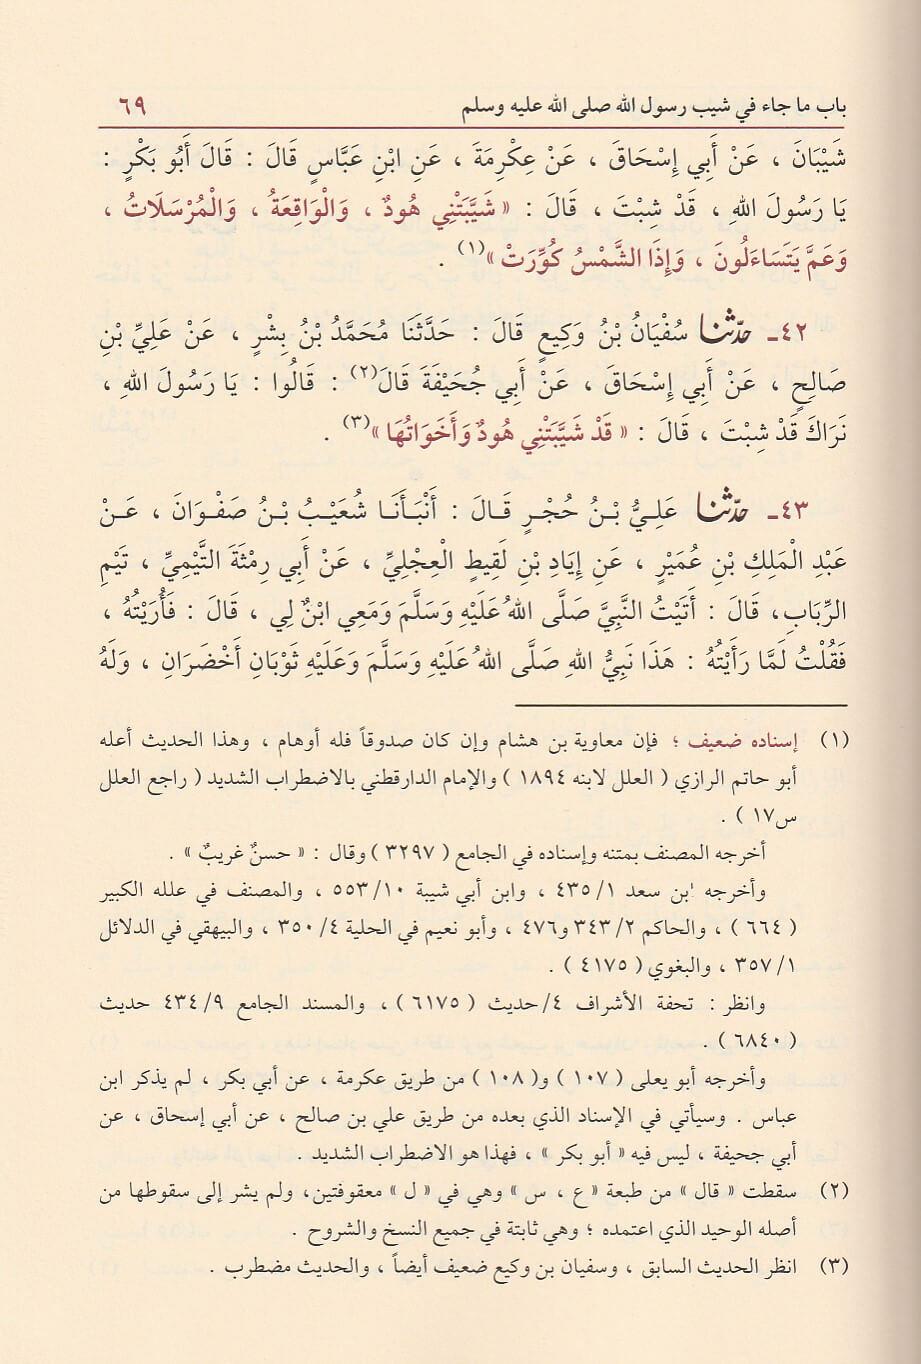 باب ما جاء في شيب رسول الله صلى الله عليه وسلم ٦٩
شَيْبَانَ ، عَنْ أَبِي إِسْحَاقَ ، عَنْ عِكْرِمَةَ ، عَنِ ابْنِ عَبَّاسٍ قَالَ : قَالَ أَبُو بَكْرٍ :
يَا رَسُولَ اللهِ ، قَدْ شِبْتَ ، قَالَ : « شَيَّبَتْنِي هُودٌ ، وَالْوَاقِعَةُ ، وَالْمُرْسَلَاتُ ،
وَعَمَّ يَتَسَاءَلُونَ ، وَإِذَا الشَّمْسُ كُوِّرَتْ »(١) .
٤٢ـ حدّثنا سُفْيَانُ بْنُ وَكِيعٍ قَالَ : حَدَّثَنَا مُحَمَّدُ بْنُ بِشْرٍ ، عَنْ عَلِيِّ بْنِ
صَالِحٍ ، عَنْ أَبِي إِسْحَاقَ ، عَنْ أَبِي جُحَيْفَةَ قَالَ(٢) : قَالُوا : يَا رَسُولَ اللهِ ،
نَرَاكَ قَدْ شِبْتَ ، قَالَ : « قَدْ شَيَّبَتْنِي هُودٌ وَأَخَوَاتُهَا »(٣) .
٤٣ـ حدّثنا عَلِيُّ بْنُ حُجْرٍ قَالَ : أَنْبَأَنَا شُعَيْبُ بْنُ صَفْوَانَ ، عَنْ
عَبْدِ الْمَلِكِ بْنِ عُمَيْرٍ ، عَنِ إِيَادِ بْنِ لَقِيطٍ الْعِجْلِيِّ ، عَنْ أَبِي رِمْثَةَ التَّيْمِيِّ ، تَيْمِ
الرِّبَابِ، قَالَ : أَتَيْتُ النَّبِيَّ صَلَّى اللهُ عَلَيْهِ وَسَلَّمَ وَمَعِي ابْنٌ لِي ، قَالَ : فَأُرَيْتُهُ ،
فَقُلْتُ لَمَّا رَأَيْتُهُ : هَذَا نَبِيُّ اللهِ صَلَّى اللهُ عَلَيْهِ وَسَلَّمَ وَعَلَيْهِ ثَوْبَانِ أَخْضَرَانِ ، وَلَهُ
(١) إسناده ضعيف ؛ فإن معاوية بن هشام وإن كان صدوقاً فله أوهام ، وهذا الحديث أعله
أبو حاتم الرازي ( العلل لابنه ١٨٩٤ ) والإمام الدارقطني بالاضطراب الشديد ( راجع العلل
س١٧ ) .
أخرجه المصنف بمتنه وإسناده في الجامع ( ٣٢٩٧ ) وقال : « حسنٌ غريبٌ » .
وأخرجه ابن سعد ١/ ٤٣٥ ، وابن أبي شيبة ١٠/ ٥٥٣ ، والمصنف في علله الكبير
( ٦٦٤ ) ، والحاكم ٢/ ٣٤٣ و٤٧٦ ، وأبو نعيم في الحلية ٤/ ٣٥٠ ، والبيهقي في الدلائل
١/ ٣٥٧ ، والبغوي ( ٤١٧٥ ) .
وانظر : تحفة الأشراف ٤/حديث ( ٦١٧٥ ) ، والمسند الجامع ٩/ ٤٣٤ حديث
( ٦٨٤٠ ) .
وأخرجه أبو يعلى ( ١٠٧ ) و( ١٠٨ ) من طريق عكرمة ، عن أبي بكر ، لم يذكر ابن
عباس . وسيأتي في الإسناد الذي بعده من طريق علي بن صالح ، عن أبي إسحاق ، عن
أبي جحيفة ، ليس فيه « أبو بكر » ، فهذا هو الاضطراب الشديد .
(٢) سقطت « قال » من طبعة « ع ، س » وهي في « ل » معقوفتين، ولم يشر إلى سقوطها من
أصله الوحيد الذي اعتمده ؛ وهي ثابتة في جميع النسخ والشروح .
(٣) انظر الحديث السابق ، وسفيان بن وكيع ضعيف أيضاً ، والحديث مضطرب .